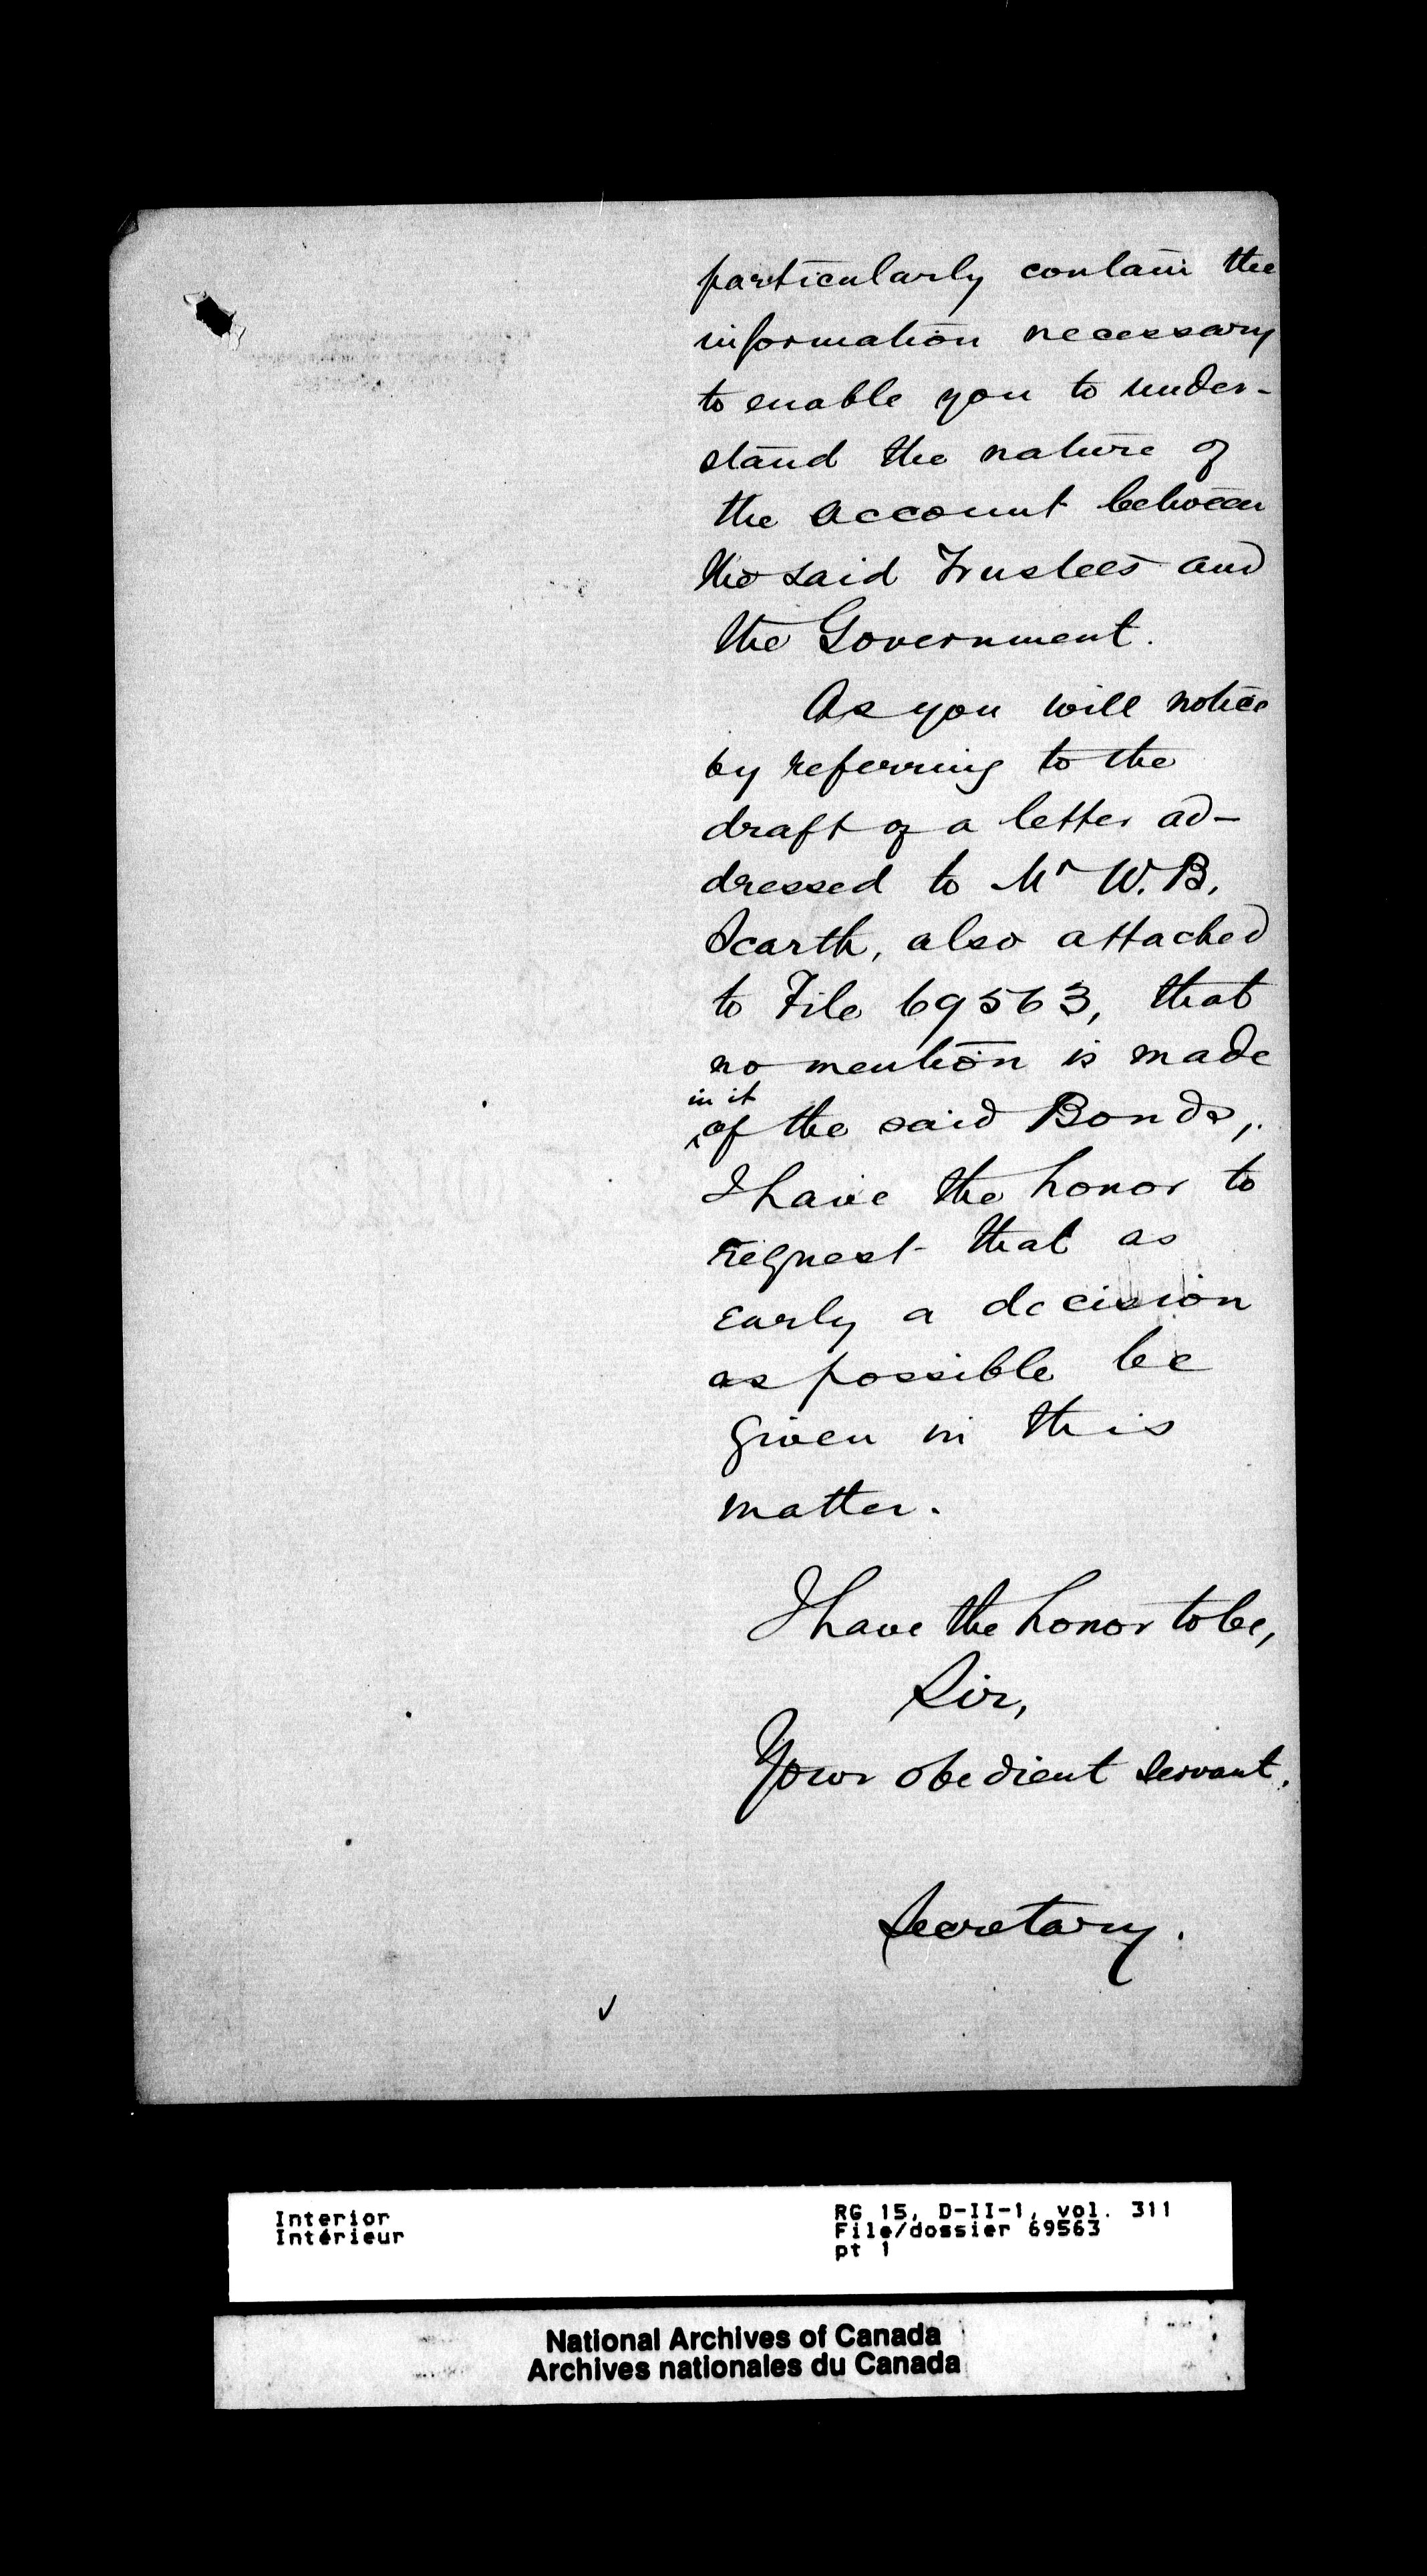 particularly contain the
information necessary
to enable you to under-
stand the nature of
the account between
the said Trustees and
the Government.
As you will notice
by referring to the
draft of a letter ad-
dressed to Mr W. B.
Scarth, also attached
to File 69563, that
no mention is made
in it
of the said Bonds,
I have the honor to
request that as
early a decision
as possible be
given in this
matter.
I have the honor to be,
Sir,
Your obedient servant.
Secretary.
Interior
Intérieur
RG 15, D-II-1, vol. 311
File/dossier 69563
pt 1
National Archives of Canada
Archives nationales du Canada